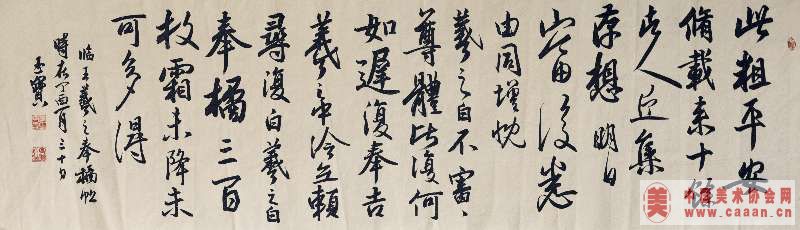 此粗平安
脩載来十餘
諸人近集
存想明日
當復悉
由同增慨
羲之白不審〻
尊體比復何
如遲復奉告
羲之中冷無頼
尋復白羲之白
奉橘三百
枚霜未降未
可多得
临王羲之奉橘帖
時在丁酉月三十日
美
中国美术协会网
www.caaan.cn